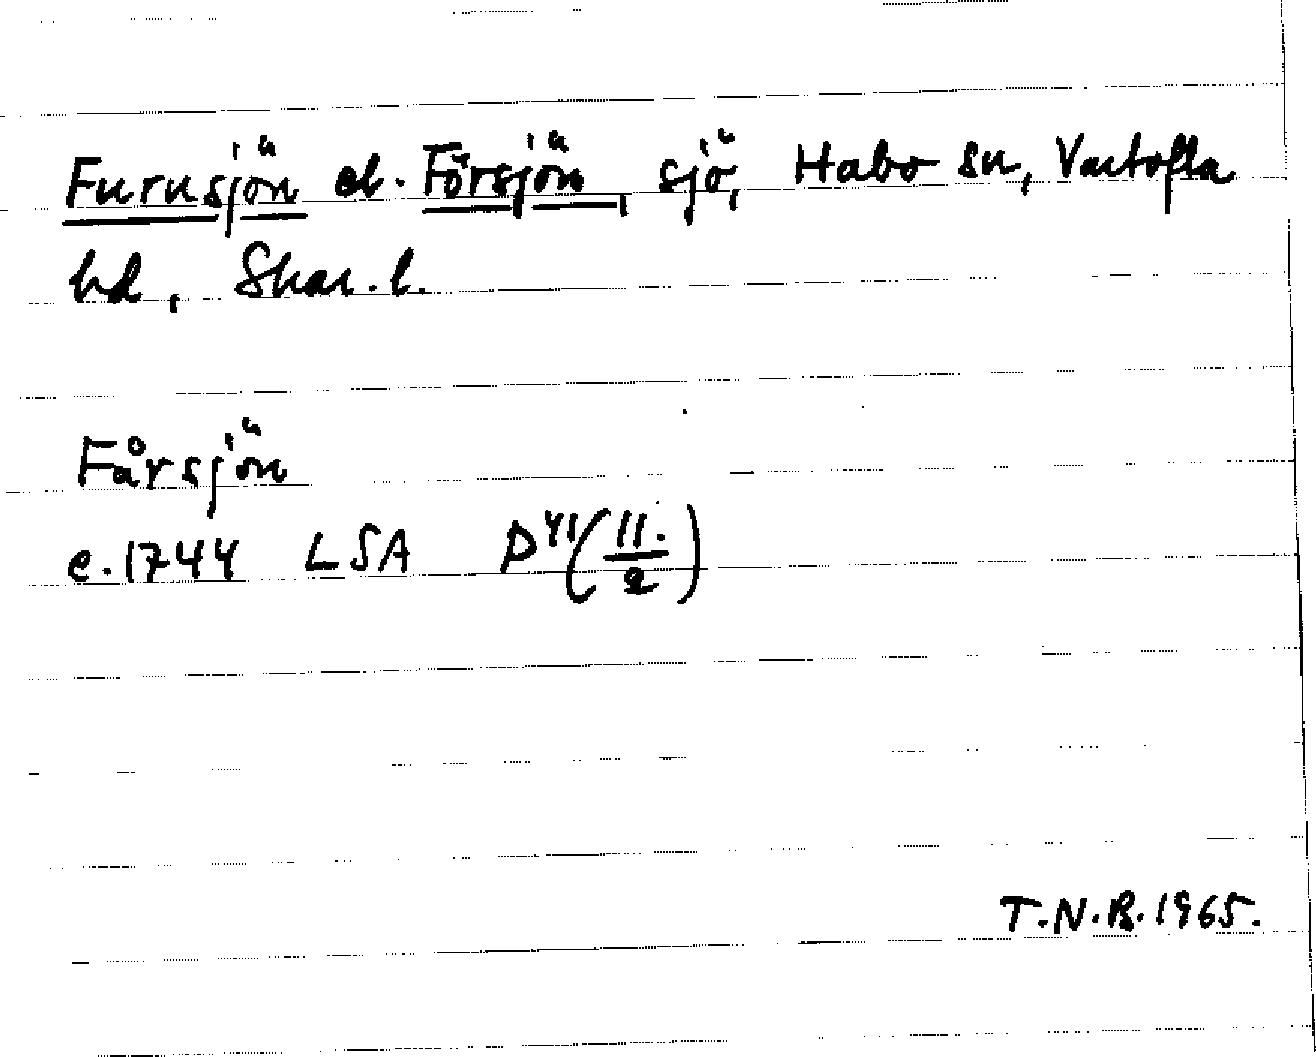 Furusjön el. Försjön, sjö, Habo sn, Vartofta
hd, Skar. l.
Fårsjön
c. 1744 LSA P 41 (11./2)
T.N.B. 1965.